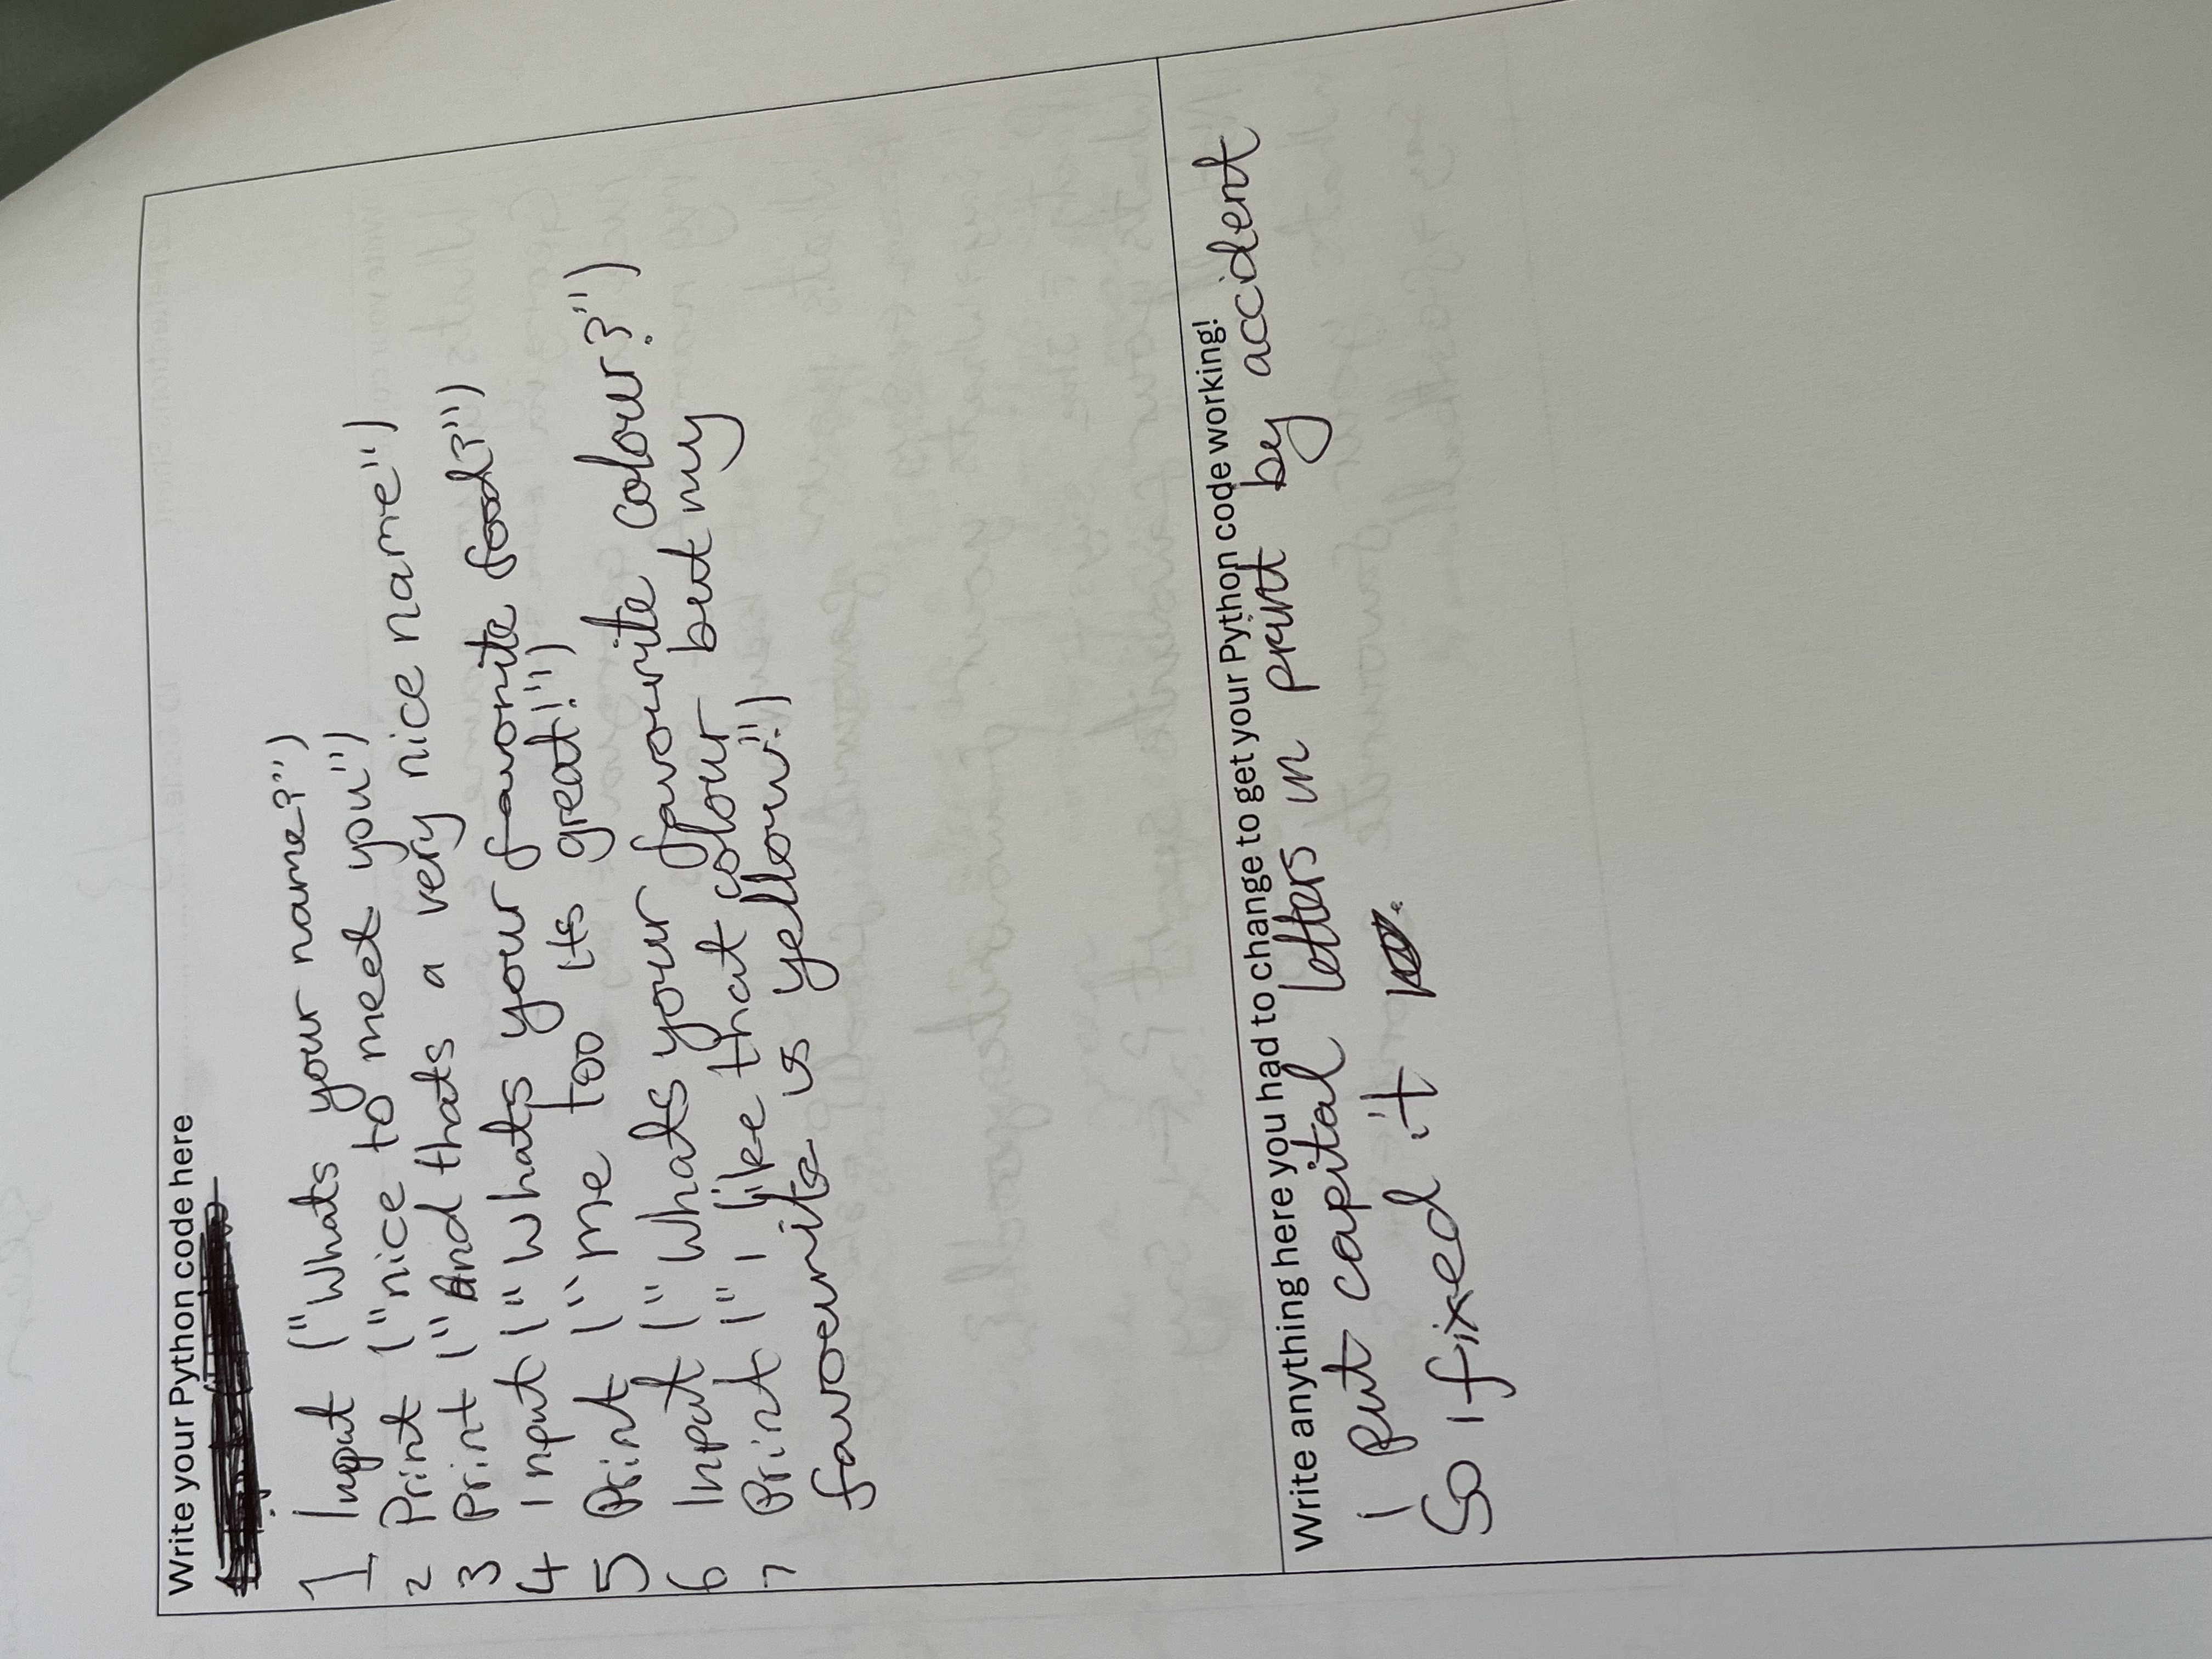 Write your Python code here
1 Input ("Whats your name?")
2 Print ("nice to meet you")
3 Print ("And thats a very nice name")
4 Input ("Whats your favorite food?")
5 Print ("me too its great!")
6 Input ("Whats your favourite colour?")
7 Print ("I like that colour but my
favourite is yellow!")
Write anything here you had to change to get your Python code working!
I put capital letters in print by accident
So I fixed it